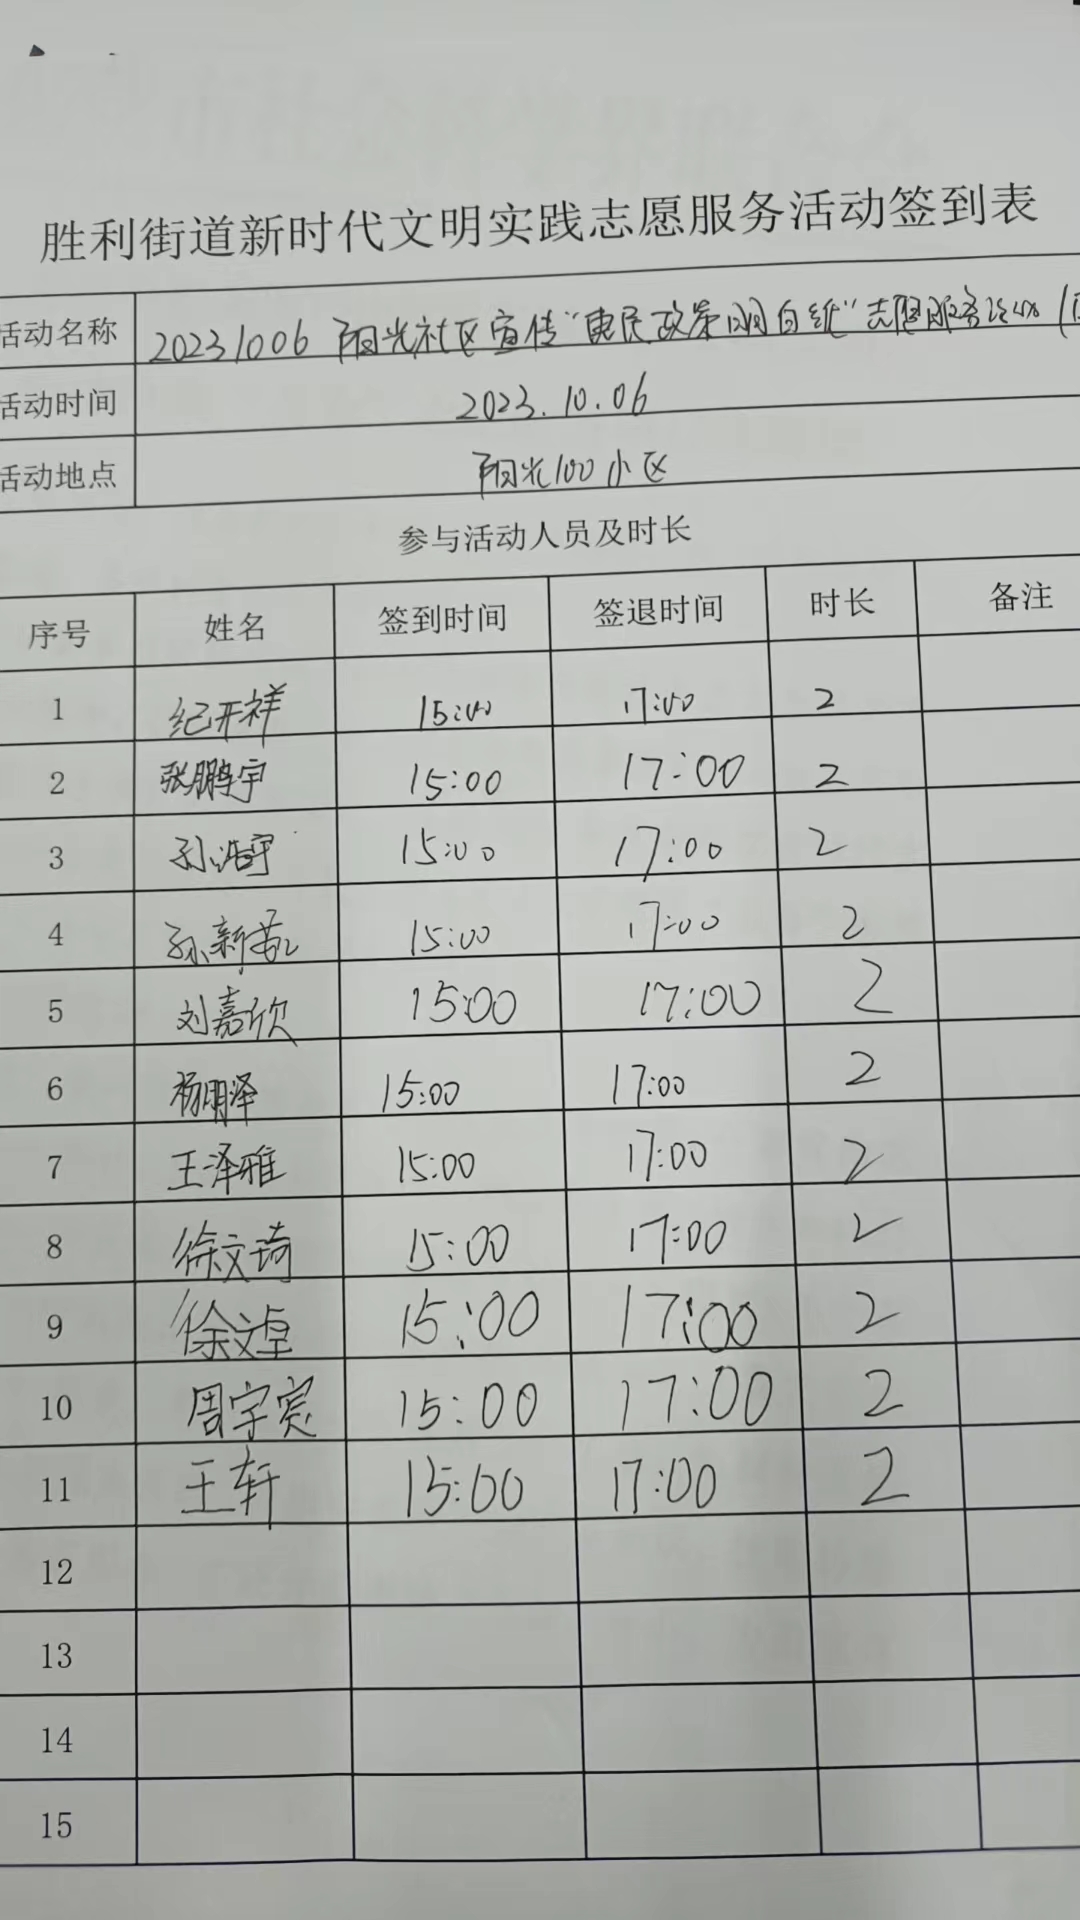 胜利街道新时代文明实践志愿服务活动签到表
活动名称 20231006 阳光社区宣传"惠民政策明白纸"志愿服务活动 (
活动时间 2023.10.06
活动地点 阳光100小区
参与活动人员及时长
序号 姓名 签到时间 签退时间 时长 备注
1 纪开祥 15:00 17:00 2
2 张鹏宇 15:00 17:00 2
3 孙浩宇 15:00 17:00 2
4 孙新 15:00 17:00 2
5 刘嘉欣 15:00 17:00 2
6 杨明泽 15:00 17:00 2
7 王泽雅 15:00 17:00 2
8 徐文琦 15:00 17:00 2
9 徐文卓 15:00 17:00 2
10 周宇宽 15:00 17:00 2
11 王轩 15:00 17:00 2
12
13
14
15